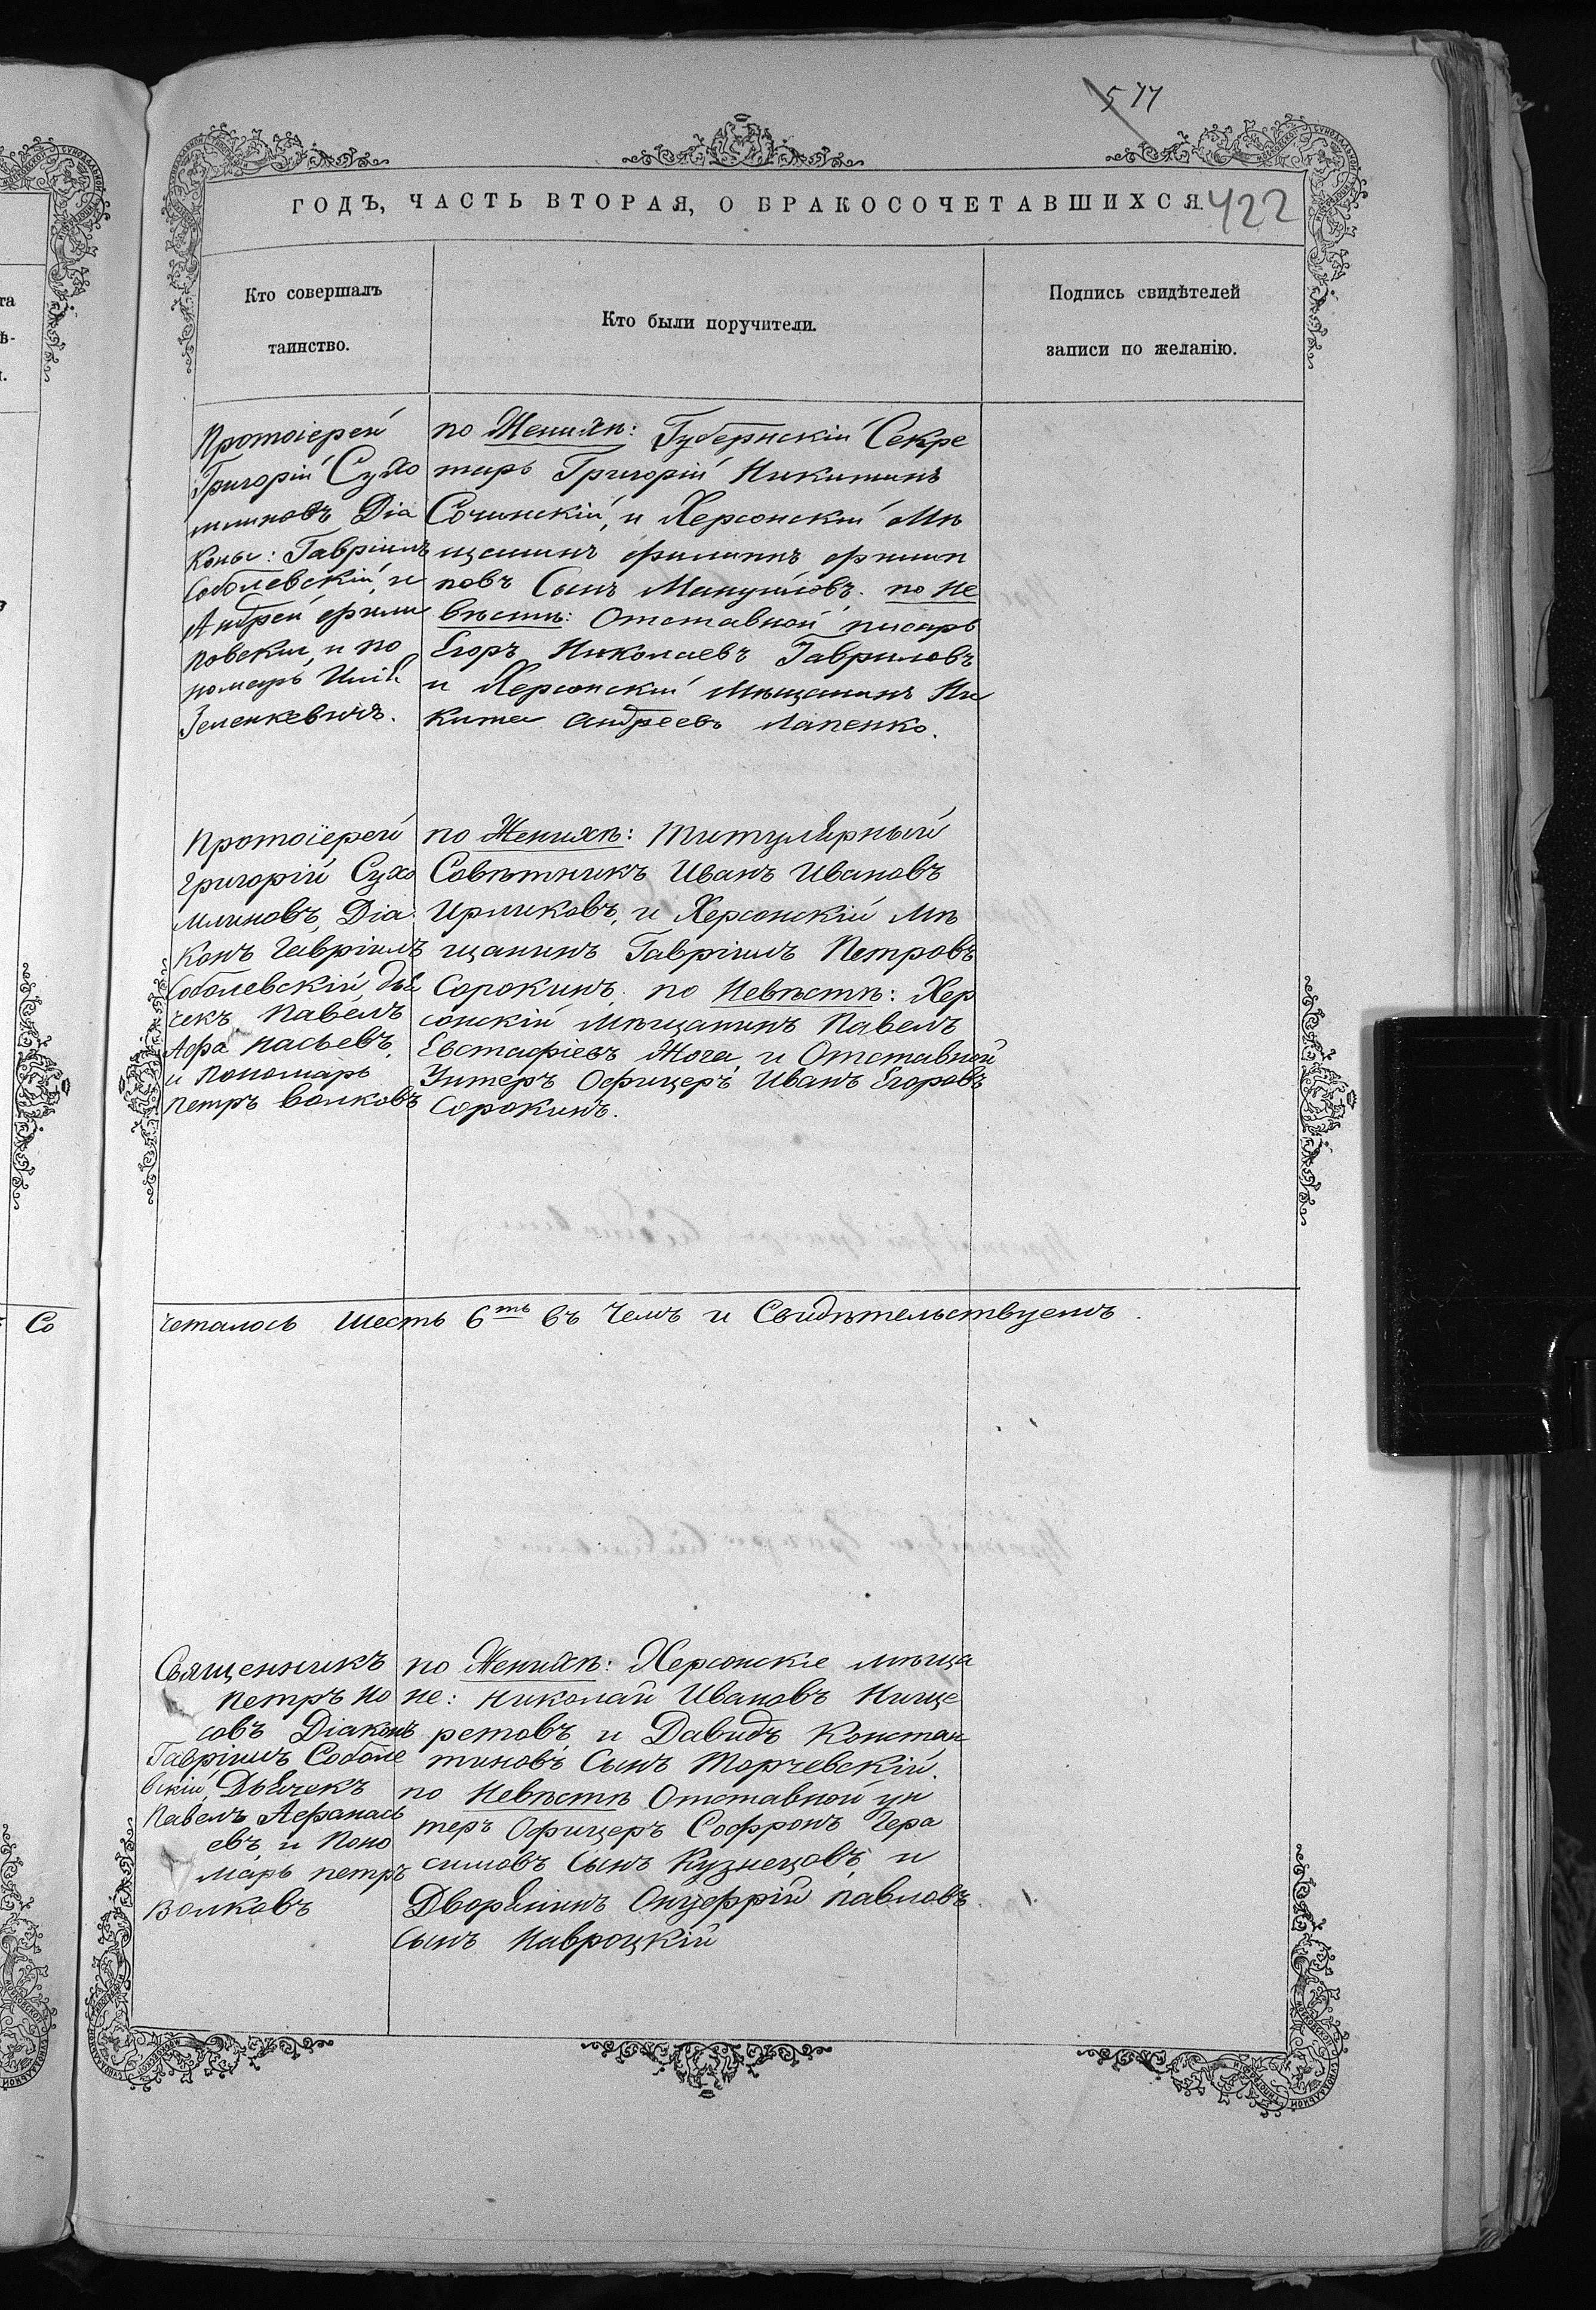 577
ГОДЪ, ЧАСТЬ ВТОРАЯ, О БРАКОСОЧЕТАВШИХСЯ.
422
Кто совершалъ
таинство.
Кто были поручители.
Подпись свидѣтелей
записи по желанію.
Протоіерей
Григорій Сухо
млиновъ, Діа
коны: Гавріилъ
Соболевскій, и
Андрей Фили
повскій, и по
номарь
Зеленкевичъ.
по Женихѣ: Губернскій Секре
тарь Григорій Никитинъ
Сочинскій, и Херсонскій Мѣ
щанинъ Филиппъ Филип
повъ Сынъ Мануйловъ. по Не
вѣстѣ: Отставной писарь
Егоръ Николаевъ Гавриловъ
и Херсонскій Мѣщанинъ Ни
кита Андреевъ Лапенко.
Протоіерей
Григорій Сухо
млиновъ, Діа
конъ Гавріилъ
Соболевскій, дья
чекъ Павелъ
Афанасьевъ,
и Пономарь
Петръ Волковъ
по Женихѣ: Титулярный
Совѣтникъ Иванъ Ивановъ
Ирликовъ, и Херсонскій Мѣ
щанинъ Гавріилъ Петровъ
Сорокинъ. по Невѣстѣ: Хер
сонскій Мѣщанинъ Павелъ
Евстафіевъ Жога, и Отставной
Унтеръ Офицеръ Иванъ Егоровъ
Сорокинъ.
Со
четалось Шесть 6ть въ Чемъ и Свидѣтельствуемъ.
Священникъ
Петръ Но
совъ Діаконъ
Гавріилъ Соболе
вскій, Дьячекъ
Павелъ Афанась
евъ и Поно
марь петръ
Волковъ
по Женихѣ: Херсонскіе мѣща
не: Николай Ивановъ Нище
ретовъ и Давидъ Констан
тиновъ Сынъ Торчевскій.
по Невѣстѣ Отставной ун
теръ Офицеръ Софронъ Гера
симовъ Сынъ Кузнецовъ и
Дворянинъ Онуфрій Павловъ
Сынъ Навроцкій